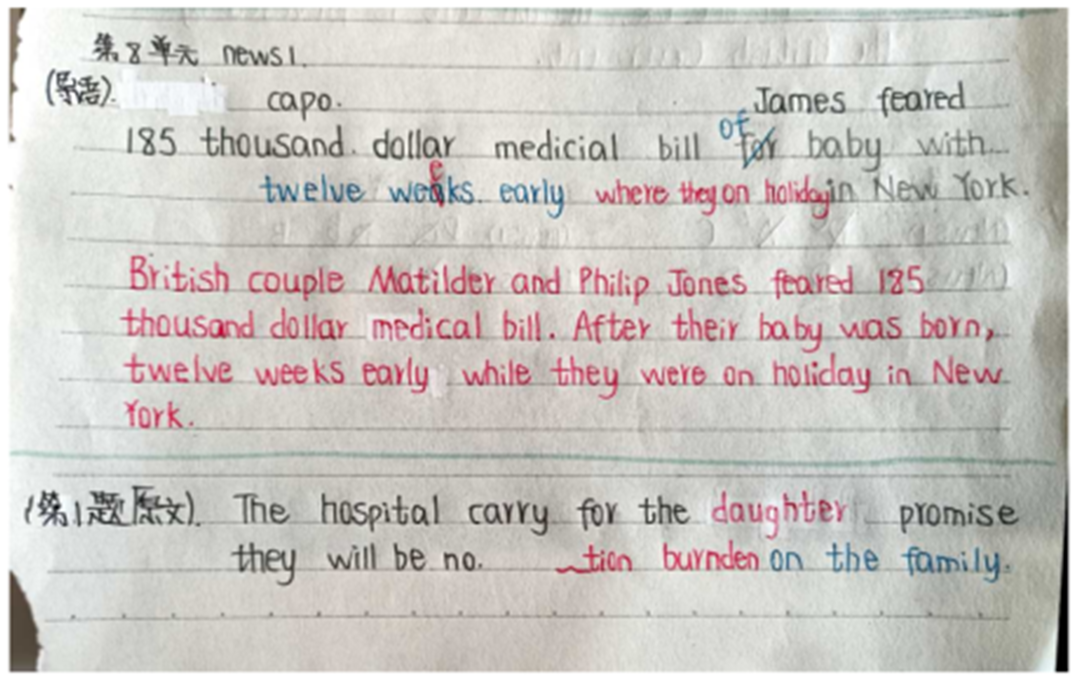 第8单元 news1.
(导语). capo. James feared
185 thousand. dollar medicial bill of for baby with
twelve weeks. early where they on holiday in New York.
British couple Matilder and Philip Jones feared 185
thousand dollar medical bill. After their baby was born,
twelve weeks early while they were on holiday in New
York.
(第1题原文). The hospital carry for the daughter promise
they will be no. ~tion burnden on the family.